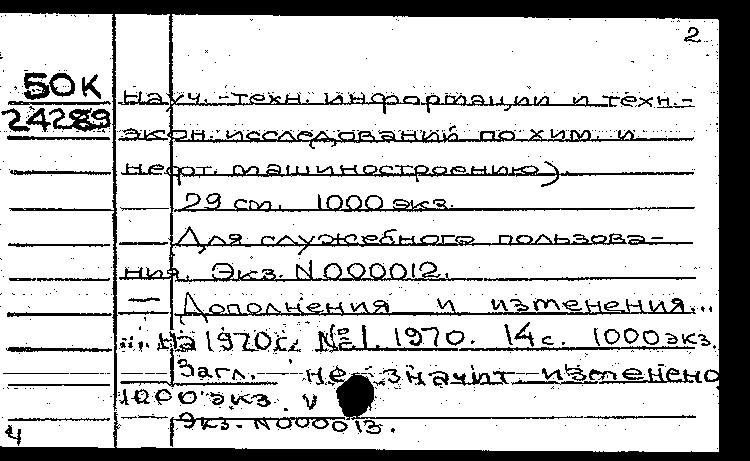 2
50К
24289
науч.-техн. информации и техн.-
экон. исследований по хим. и
нефт. машиностроению).
29 см. 1000 экз.
Для служебного пользова-
ния. Экз. N000012.
— Дополнения и изменения...
... На 1970г. №1. 1970. 14с. 1000экз.
Загл. не значит изменено
1000 экз.
Экз. N000013.
4